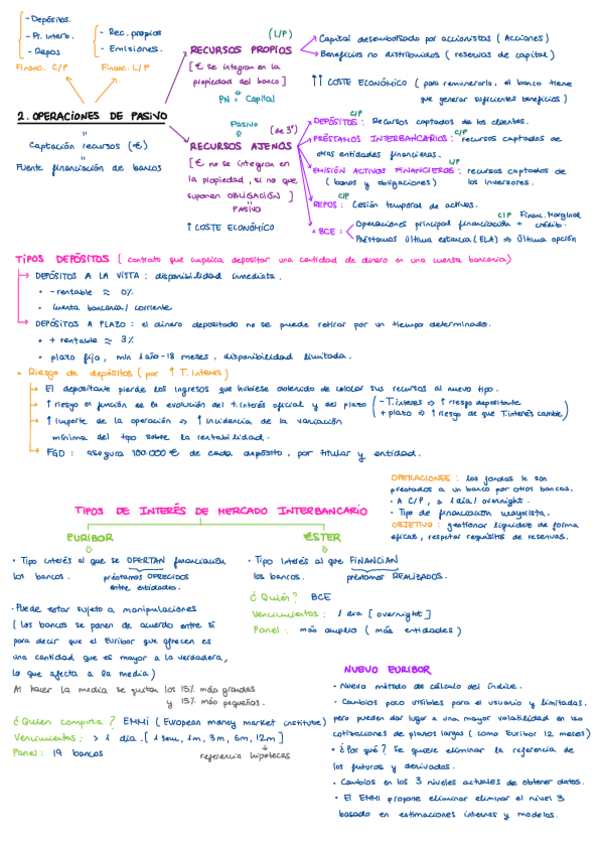 - Depósitos.
- Pr. Interb.
- Repos
Financ. C/P
- Rec. propios
- Emisiones.
Financ. L/P
2. OPERACIONES DE PASIVO
"
Captación recursos (€)
"
Fuente financiación de bancos
(L/P)
RECURSOS PROPIOS
[ € se integran en la
propiedad del banco ]
PN = Capital
Capital desembolsado por accionistas ( Acciones )
Beneficios no distribuidos ( reservas de capital )
↑↑ COSTE ECONÓMICO ( para remunerarlo, el banco tiene
que generar suficientes beneficios )
Pasivo
(de 3º)
RECURSOS AJENOS
[ € no se integran en
la propiedad, si no que
suponen OBLIGACIÓN ]
PASIVO
↑ COSTE ECONÓMICO
C/P
DEPÓSITOS : Recursos captados de los clientes.
C/P
PRÉSTAMOS INTERBANCARIOS : recursos captados de
otras entidades financieras.
L/P
EMISIÓN ACTIVOS FINANCIEROS : recursos captados de
( bonos y obligaciones ) los inversores.
C/P
REPOS : Cesión temporal de activos.
C/P Financ. Marginal
+ BCE : Operaciones principal financiación + crédito.
Préstamos última estancia (ELA) ⇒ última opción
TIPOS DEPÓSITOS ( contrato que implica depositar una cantidad de dinero en una cuenta bancaria)
DEPÓSITOS A LA VISTA : disponibilidad inmediata.
• - rentable ≈ 0%
• Cuenta bancaria / corriente
DEPÓSITOS A PLAZO : el dinero depositado no se puede retirar por un tiempo determinado.
• + rentable ≈ 3%
• plazo fijo, min 1 año - 18 meses, disponibilidad limitada.
• Riesgo de depósitos ( por ↑ T. interes )
El depositante pierde los ingresos que hubiese obtenido de colocar sus recursos al nuevo tipo.
↑ riesgo en función de la evolución del t. interés oficial y del plazo ( - T. interes ⇒ ↑ riesgo depositante
+ plazo ⇒ ↑ riesgo de que T. interés cambie )
↑ importe de la operación ⇒ ↑ incidencia de la variación
mínima del tipo sobre la rentabilidad.
FGD : asegura 100.000 € de cada depósito, por titular y entidad.
OPERACIONES : los fondos le son
prestados a un banco por otros bancos.
• A C/P, a 1 día / overnight.
• Tipo de financiación mayorista.
OBJETIVO : gestionar liquidez de forma
eficaz, respetar requisitos de reservas.
TIPOS DE INTERÉS DE MERCADO INTERBANCARIO
EURIBOR
• Tipo interés al que se OFERTAN financiación
los bancos. préstamos OFRECIDOS
entre entidades.
• Puede estar sujeto a manipulaciones
( los bancos se ponen de acuerdo entre sí
para decir que el Euribor que ofrecen es
una cantidad que es mayor a la verdadera,
lo que afecta a la media )
Al hacer la media se quitan los 15% más grandes
y 15% más pequeños.
¿Quien computa ? EMMI ( European money market institute )
Vencimientos : > 1 día. [ 1 sem, 1m, 3m, 6m, 12m ]
Panel : 19 bancos
referencia hipotecas
€STER
• Tipo interés al que FINANCIAN
los bancos. préstamos REALIZADOS.
¿ Quién ? BCE
Vencimientos : 1 día [ overnight ]
Panel : más amplio ( más entidades )
NUEVO EURIBOR
• Nuevo método de cálculo del índice.
• Cambios poco visibles para el usuario y limitadas,
pero pueden dar lugar a una mayor volatilidad en las
cotizaciones de plazos largas ( como Euribor 12 meses )
• ¿ Por qué ? Se quiere eliminar la referencia de
los futuros y derivadas.
• Cambios en los 3 niveles actuales de obtener datos.
• El EMMI propone eliminar eliminar el nivel 3
basado en estimaciones internas y modelos.